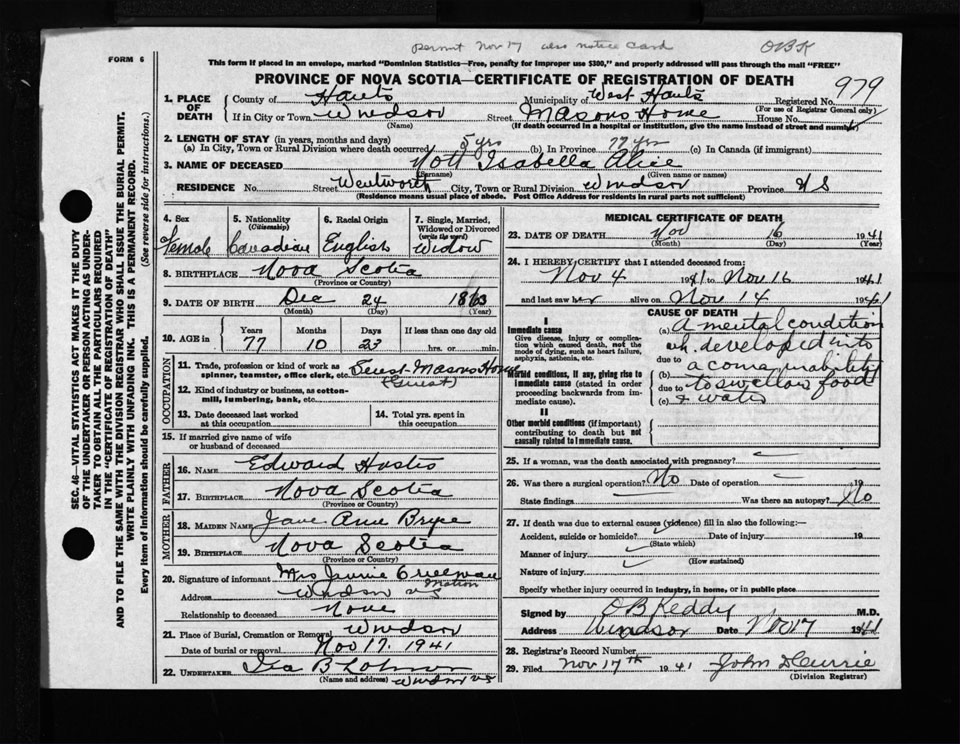 permit Nov 17 also notice card OBK
FORM 6
This form if placed in an envelope, marked "Dominion Statistics—Free, penalty for improper use $300," and properly addressed will pass through the mail "FREE"
PROVINCE OF NOVA SCOTIA—CERTIFICATE OF REGISTRATION OF DEATH
979
SEC. 46—VITAL STATISTICS ACT MAKES IT THE DUTY
OF THE UNDERTAKER OR PERSON ACTING AS UNDER-
TAKER TO OBTAIN ALL THE PARTICULARS REQUIRED
IN THE "CERTIFICATE OF REGISTRATION OF DEATH"
AND TO FILE THE SAME WITH THE DIVISION REGISTRAR WHO SHALL ISSUE THE BURIAL PERMIT.
WRITE PLAINLY WITH UNFADING INK. THIS IS A PERMANENT RECORD.
Every item of information should be carefully supplied. (See reverse side for instructions.)
1. PLACE OF DEATH
County of Hants Municipality of West Hants Registered No.
(For use of Registrar General only)
If in City or Town Windsor Street Masons Home House No.
(Name) (If death occurred in a hospital or institution, give the name instead of street and number)
2. LENGTH OF STAY (in years, months and days)
(a) In City, Town or Rural Division where death occurred 5 yrs (b) In Province 77 yrs (c) In Canada (if immigrant)
3. NAME OF DECEASED Nott Isabella Alice
(Surname) (Given name or names)
RESIDENCE No. Street Wentworth City, Town or Rural Division Windsor Province N S
(Residence means usual place of abode. Post Office Address for residents in rural parts not sufficient)
4. Sex 5. Nationality 6. Racial Origin 7. Single, Married,
(Citizenship) Widowed or Divorced
(write the word)
Female Canadian English Widow
8. BIRTHPLACE Nova Scotia
(Province or Country)
9. DATE OF BIRTH Dec 24 1863
(Month) (Day) (Year)
10. AGE in Years Months Days If less than one day old
77 10 23 hrs. or min.
OCCUPATION
11. Trade, profession or kind of work as
spinner, teamster, office clerk, etc. Guest-Masons Home
(Guest)
12. Kind of industry or business, as cotton-
mill, lumbering, bank, etc.
13. Date deceased last worked
at this occupation
14. Total yrs. spent in
this occupation
15. If married give name of wife
or husband of deceased
FATHER
16. NAME Edward
17. BIRTHPLACE Nova Scotia
(Province or Country)
MOTHER
18. MAIDEN NAME Jane Ann Bryce
19. BIRTHPLACE Nova Scotia
(Province or Country)
20. Signature of informant Mrs Jennie Creelman
Matron
Address Windsor NS
Relationship to deceased None
21. Place of Burial, Cremation or Removal Windsor
Date of burial or removal Nov 17. 1941
22. UNDERTAKER Ira B
(Name and address) Windsor NS
MEDICAL CERTIFICATE OF DEATH
23. DATE OF DEATH Nov 16 1941
(Month) (Day) (Year)
24. I HEREBY CERTIFY that I attended deceased from:
Nov 4 1941 to Nov 16 1941
and last saw her alive on Nov 14 1941
CAUSE OF DEATH
I
Immediate cause
Give disease, injury or complica-
tion which caused death, not the
mode of dying, such as heart failure,
asphyxia, asthenia, etc.
Morbid conditions, if any, giving rise to
immediate cause (stated in order
proceeding backwards from im-
mediate cause).
II
Other morbid conditions (if important)
contributing to death but not
causally related to immediate cause.
(a) A mental condition
wh. developed into
due to
(b) a coma, inability
due to to swallow food
(c) & water
25. If a woman, was the death associated with pregnancy?
26. Was there a surgical operation? No Date of operation 19
State findings Was there an autopsy? No
27. If death was due to external causes (violence) fill in also the following:—
Accident, suicide or homicide? Date of injury 19
(State which)
Manner of injury
(How sustained)
Nature of injury
Specify whether injury occurred in industry, in home, or in public place
Signed by OB Keddy M.D.
Address Windsor Date Nov 17 1941
28. Registrar's Record Number
29. Filed Nov 17th 1941 John D Currie
(Division Registrar)